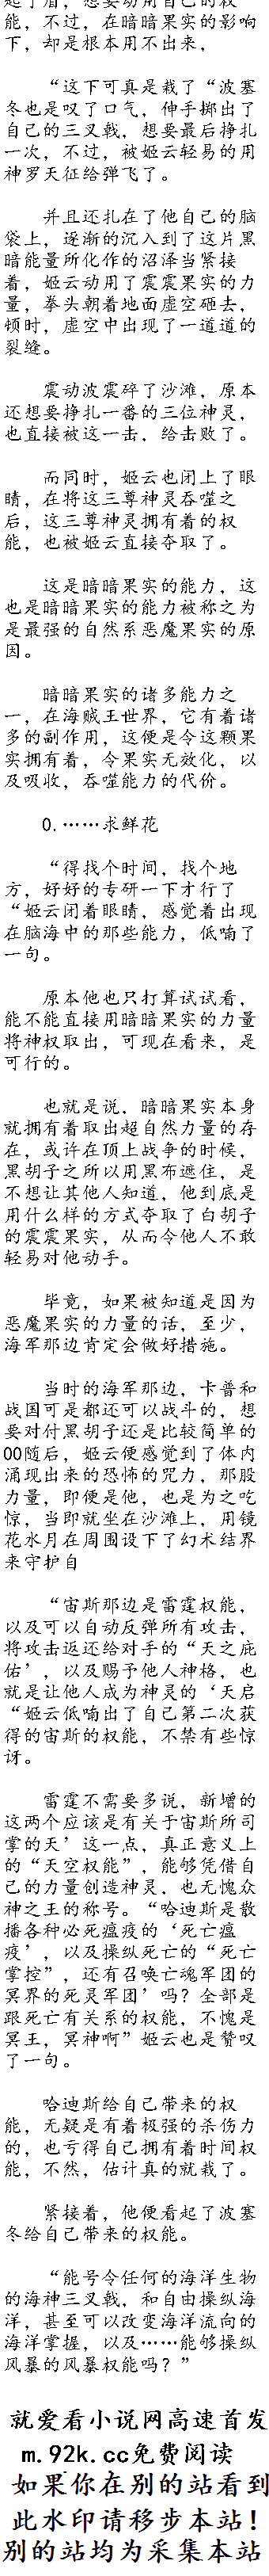 起了眉，想要动用自己的权
能，不过，在暗暗果实的影响
下，却是根本用不出来，
“这下可真是栽了“波塞
冬也是叹了口气，伸手掷出了
自己的三叉戟，想要最后挣扎
一次，不过，被姬云轻易的用
神罗天征给弹飞了。
并且还扎在了他自己的脑
袋上，逐渐的沉入到了这片黑
暗能量所化作的沼泽当紧接
着，姬云动用了震震果实的力
量，拳头朝着地面虚空砸去，
顿时，虚空中出现了一道道的
裂缝。
震动波震碎了沙滩，原本
还想要挣扎一番的三位神灵，
也直接被这一击，给击败了。
而同时，姬云也闭上了眼
睛，在将这三尊神灵吞噬之
后，这三尊神灵拥有着的权
能，也被姬云直接夺取了。
这是暗暗果实的能力，这
也是暗暗果实的能力被称之为
是最强的自然系恶魔果实的原
因。
暗暗果实的诸多能力之
一，在海贼王世界，它有着诸
多的副作用，这便是令这颗果
实拥有着，令果实无效化，以
及吸收，吞噬能力的代价。
0.……求鲜花
“得找个时间，找个地
方，好好的专研一下才行了
“姬云闭着眼睛，感觉着出现
在脑海中的那些能力，低喃了
一句。
原本他也只打算试试看，
能不能直接用暗暗果实的力量
将神权取出，可现在看来，是
可行的。
也就是说，暗暗果实本身
就拥有着取出超自然力量的存
在，或许在顶上战争的时候，
黑胡子之所以用黑布遮住，是
不想让其他人知道，他到底是
用什么样的方式夺取了白胡子
的震震果实，从而令他人不敢
轻易对他动手。
毕竟，如果被知道是因为
恶魔果实的力量的话，至少，
海军那边肯定会做好措施。
当时的海军那边，卡普和
战国可是都还可以战斗的，想
要对付黑胡子还是比较简单的
00随后，姬云便感觉到了体内
涌现出来的恐怖的咒力，那股
力量，即便是他，也是为之吃
惊，当即就坐在沙滩上，用镜
花水月在周围设下了幻术结界
来守护自
“宙斯那边是雷霆权能，
以及可以自动反弹所有攻击，
将攻击返还给对手的“天之庇
佑’，以及赐予他人神格，也
就是让他人成为神灵的‘天启
“姬云低喃出了自己第二次获
得的宙斯的权能，不禁有些惊
讶。
雷霆不需要多说，新增的
这两个应该是有关于宙斯所司
掌的天’这一点，真正意义上
的“天空权能”，能够凭借自
己的力量创造神灵，也无愧众
神之王的称号。“哈迪斯是散
播各种必死瘟疫的‘死亡瘟
疫’，以及操纵死亡的“死亡
掌控”，还有召唤亡魂军团的
冥界的死灵军团’吗？全部是
跟死亡有关系的权能，不愧是
冥王，冥神啊”姬云也是赞叹
了一句。
哈迪斯给自己带来的权
能，无疑是有着极强的杀伤力
的，也亏得自己拥有着时间权
能，不然，估计真的就栽了。
紧接着，他便看起了波塞
冬给自己带来的权能。
“能号令任何的海洋生物
的海神三叉戟，和自由操纵海
洋，甚至可以改变海洋流向的
海洋掌握，以及……能够操纵
风暴的风暴权能吗？”
就爱看小说网高速首发
m.92k.cc免费阅读
如果你在别的站看到
此水印请移步本站！
别的站均为采集本站